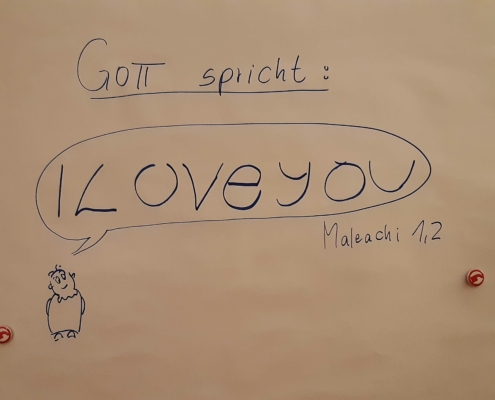 Gott spricht:
I Love you
Maleachi 1,2